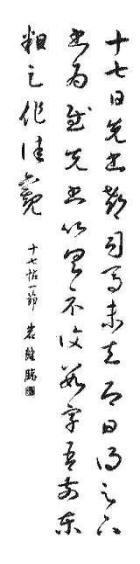 十七日先書郗司馬未去即日得足下
書為慰先書以具示復數字吾前東
粗足作佳觀
十七帖一節 臨